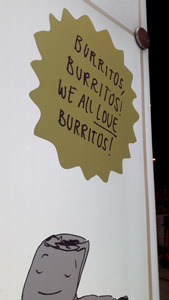 BURRITOS,
BURRITOS!
WE ALL LOVE
BURRITOS!